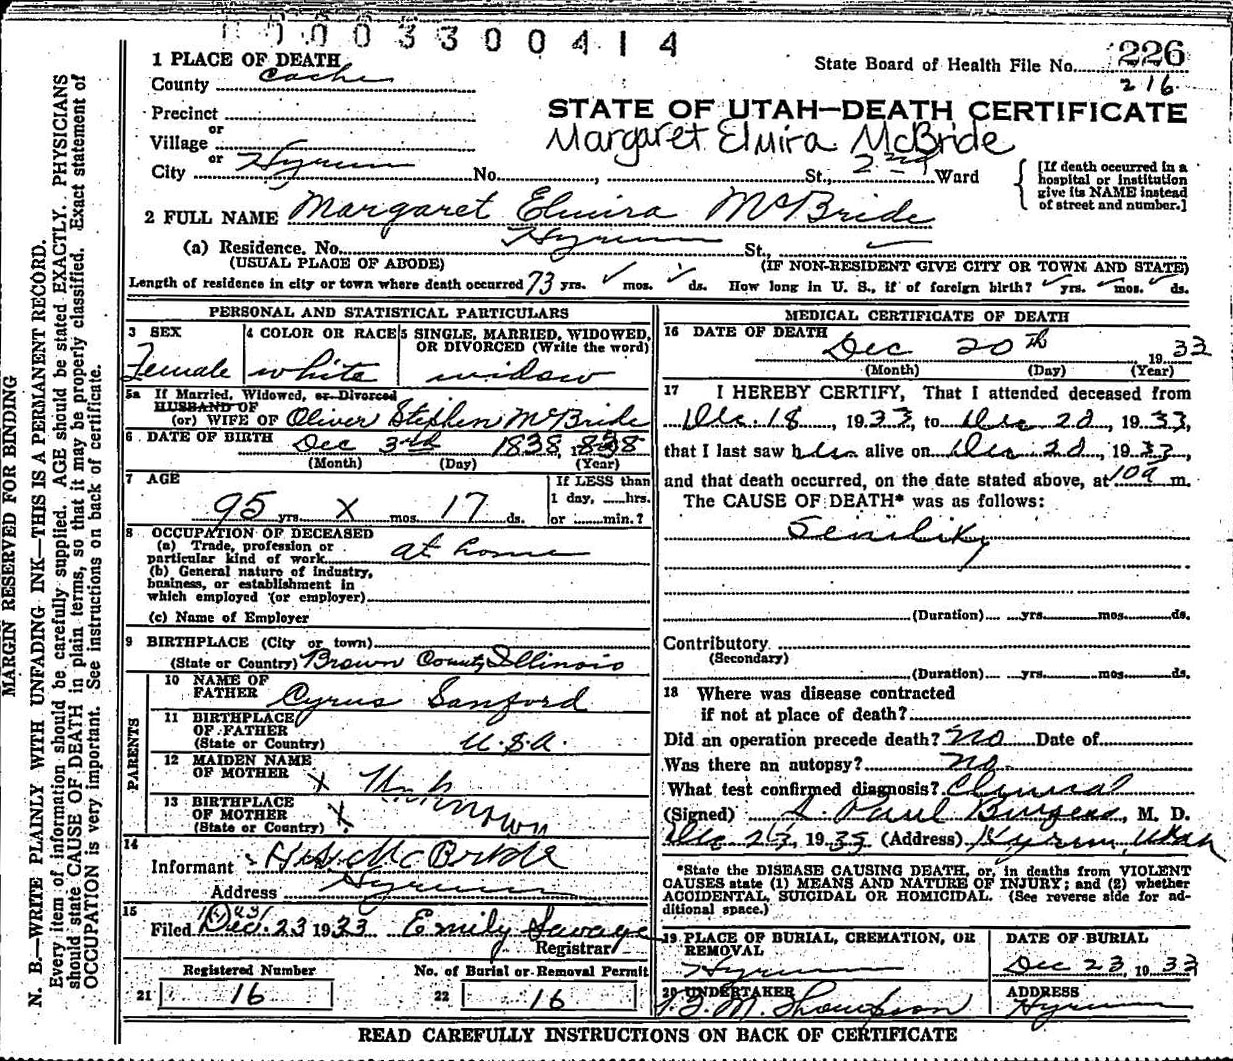 0 0 0 3 3 0 0 4 1 4
1 PLACE OF DEATH
State Board of Health File No. 226
County Cache
216
Precinct
STATE OF UTAH—DEATH CERTIFICATE
or
Margaret Elmira McBride
Village
or
City Hyrum No. , St., 2nd Ward
[If death occurred in a
hospital or institution
give its NAME instead
of street and number.]
2 FULL NAME Margaret Elmira McBride
(a) Residence. No. Hyrum St.,
(USUAL PLACE OF ABODE) (IF NON-RESIDENT GIVE CITY OR TOWN AND STATE)
Length of residence in city or town where death occurred 73 yrs. ✓ mos. ✓ ds. How long in U. S., if of foreign birth? ✓ yrs. ✓ mos. ✓ ds.
PERSONAL AND STATISTICAL PARTICULARS
3 SEX
4 COLOR OR RACE
5 SINGLE, MARRIED, WIDOWED,
OR DIVORCED (Write the word)
Female white widow
5a If Married, Widowed, or Divorced
HUSBAND OF
(or) WIFE OF Oliver Stephen McBride
6 DATE OF BIRTH Dec 3rd 1838, 1838
(Month) (Day) (Year)
7 AGE
If LESS than
1 day, ......hrs.
or ......min.?
95 yrs. X mos. 17 ds.
8 OCCUPATION OF DECEASED
(a) Trade, profession or
particular kind of work at home
(b) General nature of industry,
business, or establishment in
which employed (or employer)
(c) Name of Employer
9 BIRTHPLACE (City or town)
(State or Country) Brown County, Illinois
PARENTS
10 NAME OF
FATHER Cyrus Sanford
11 BIRTHPLACE
OF FATHER
(State or Country) U.S.A.
12 MAIDEN NAME
OF MOTHER X
13 BIRTHPLACE
OF MOTHER
(State or Country) X Unknown
14
Informant McBride
Address Hyrum
15
Filed Dec. 23 1933 Emily Savage
Registrar
Registered Number No. of Burial or Removal Permit
21 16 22 16
MEDICAL CERTIFICATE OF DEATH
16 DATE OF DEATH
Dec 20th, 1933
(Month) (Day) (Year)
17 I HEREBY CERTIFY, That I attended deceased from
Dec. 18, 1933, to Dec 20, 1933,
that I last saw her alive on Dec 20, 1933,
and that death occurred, on the date stated above, at 10a m.
The CAUSE OF DEATH* was as follows:
Senility
(Duration) yrs. mos. ds.
Contributory
(Secondary)
(Duration) yrs. mos. ds.
18 Where was disease contracted
if not at place of death?
Did an operation precede death? No Date of
Was there an autopsy? no
What test confirmed diagnosis? Clinical
(Signed) Paul Burgess, M. D.
Dec 1933 (Address) Hyrum, Utah
*State the DISEASE CAUSING DEATH, or, in deaths from VIOLENT
CAUSES state (1) MEANS AND NATURE OF INJURY; and (2) whether
ACCIDENTAL, SUICIDAL OR HOMICIDAL. (See reverse side for ad-
ditional space.)
19 PLACE OF BURIAL, CREMATION, OR
REMOVAL
Hyrum
DATE OF BURIAL
Dec 23, 1933
20 UNDERTAKER
M. Thompson
ADDRESS
Hyrum
READ CAREFULLY INSTRUCTIONS ON BACK OF CERTIFICATE
MARGIN RESERVED FOR BINDING
N. B.—WRITE PLAINLY WITH UNFADING INK—THIS IS A PERMANENT RECORD.
Every item of information should be carefully supplied. AGE should be stated EXACTLY. PHYSICIANS
should state CAUSE OF DEATH in plain terms, so that it may be properly classified. Exact statement of
OCCUPATION is very important. See instructions on back of certificate.